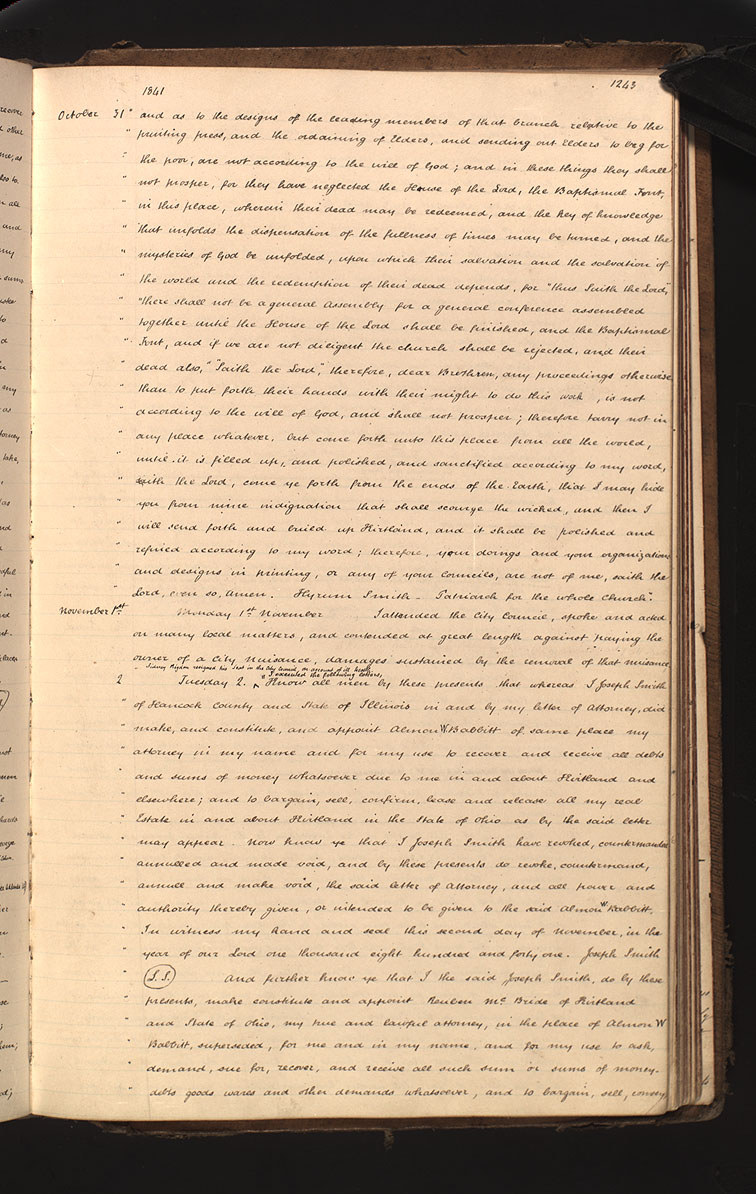 1841
1243
October 31 " and as to the designs of the leading members of that branch relative to the
" printing press, and the ordaining of Elders, and sending out Elders to beg for
" the poor, are not according to the will of God; and in these things they shall
" not prosper, for they have neglected the House of the Lord, the Baptismal Font,
" in this place, wherein their dead may be redeemed, and the key of knowledge
" that unfolds the dispensation of the fullness of times may be turned, and the
" mysteries of God be unfolded, upon which their salvation and the salvation of
" the world and the redemption of their dead depends, for "thus saith the Lord,"
" "there shall not be a general Assembly for a general conference assembled
" together until the House of the Lord shall be finished, and the Baptismal
" Font, and if we are not diligent the church shall be rejected, and their
" dead also," "Saith the Lord," therefore, dear Brethren, any proceedings otherwise
" than to put forth their hands with their might to do this work, is not
" according to the will of God, and shall not prosper; therefore tarry not in
" any place whatever, but come forth unto this place from all the world,
" until it is filled up, and polished, and sanctified according to my word,
" saith the Lord, come ye forth from the ends of the Earth, that I may hide
" you from mine indignation that shall scourge the wicked, and then I
" will send forth and build up Kirtland, and it shall be polished and
" refined according to my word; therefore, your doings and your organizations
" and designs in printing, or any of your councils, are not of me, saith the
" Lord, even so, Amen. Hyrum Smith - Patriarch for the whole Church".
November 1st Monday 1st November I attended the City Council, spoke and acted
" on many local matters, and contended at great length against paying the
" owner of a City nuisance, damages sustained by the removal of that nuisance
Sidney Rigdon resigned his seat in the City Council, on account of ill health
" I executed the following letters,
2 Tuesday 2. ^ Know all men by these presents that whereas I Joseph Smith
" of Hancock County and State of Illinois in and by my letter of Attorney, did
" make, and constitute, and appoint Almon W Babbitt of same place my
" attorney in my name and for my use to recover and receive all debts
" and sums of money whatsoever due to me in and about Kirtland and
" elsewhere; and to bargain, sell, confirm, lease and release all my real
" Estate in and about Kirtland in the State of Ohio as by the said letter
" may appear. Now know ye that I Joseph Smith have revoked, countermanded
" annulled and made void, and by these presents do revoke, countermand,
" annull and make void, the said letter of Attorney, and all power and
" authority thereby given, or intended to be given to the said Almon W Babbitt.
" In witness my hand and seal this second day of November, in the
" year of our Lord one thousand eight hundred and forty one. Joseph Smith
" (L.S.) And further know ye that I the said Joseph Smith, do by these
" presents, make constitute and appoint Reuben Mc Bride of Kirtland
" and State of Ohio, my true and lawful attorney, in the place of Almon W
" Babbitt, superseded, for me and in my name, and for my use to ask,
" demand, sue for, recover, and receive all such sum or sums of money.
" debts goods wares and other demands whatsoever, and to bargain, sell, convey